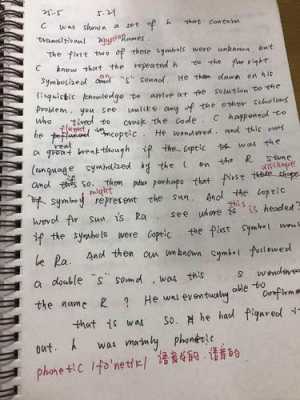 25-5 5.21
C was shown a set of h that contain
transitional names.
The first two of these symbols were unknown but
C know that the repeated h to the far right
symbolized an "s" sound. He then dawn on his
linguistic knowledge to arrive at the solution to the
problem, you see unlike any of the other scholars
who tired to crack the code. C happened to
be fluent in coptic. He wondered, and this was
a great breakthough if the coptic was the
language symbolized by the l on the R stone
and so. Then perhaps that first shape
of symbol might represent the sun. And the coptic
word for sun is Ra. see where this is headed?
if the symbols were coptic the first symbol
be Ra. And then an unknown symbol followed
a double "s" sound, was this, s
the name R ? He was eventually able to
that is was so. he had figured
out. h was mainly phonetic
phonetic /fə'netɪk/ 语音的